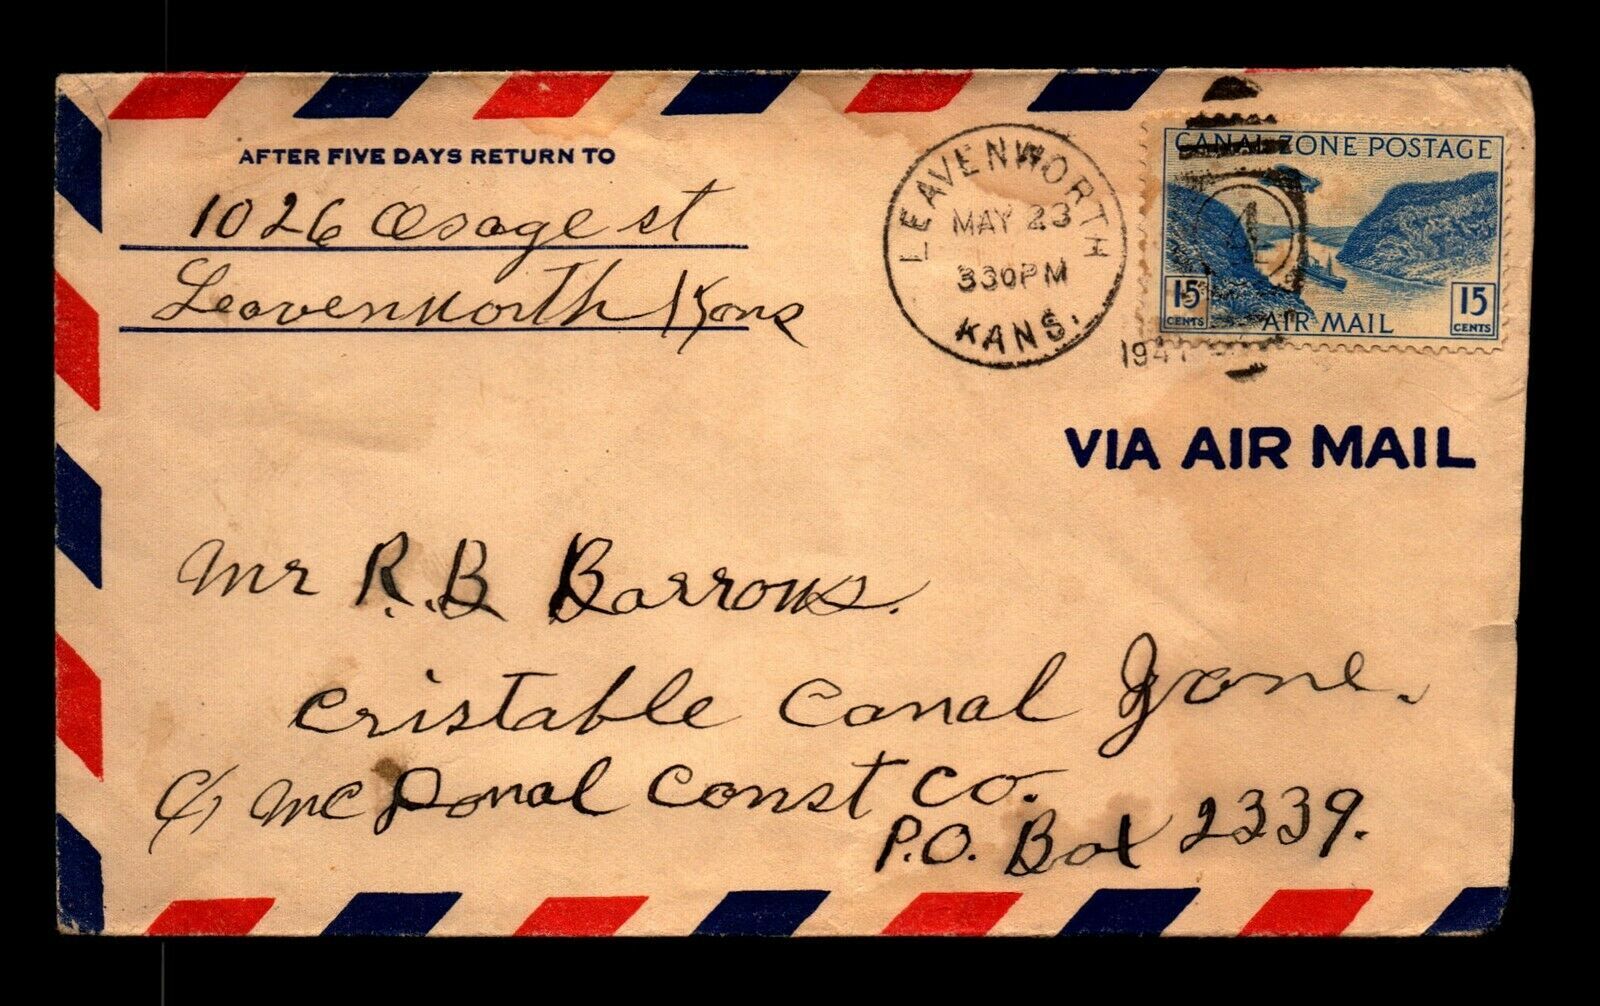 AFTER FIVE DAYS RETURN TO
1026 Osage st
Leavenworth Kans
LEAVENWORTH
MAY 23
330PM
KANS.
CANAL ZONE POSTAGE
15 CENTS
AIR MAIL
15 CENTS
VIA AIR MAIL
Mr R.B Barrows.
Cristable Canal Zone.
c/o McDonal Const Co.
P.O. Box 2339.